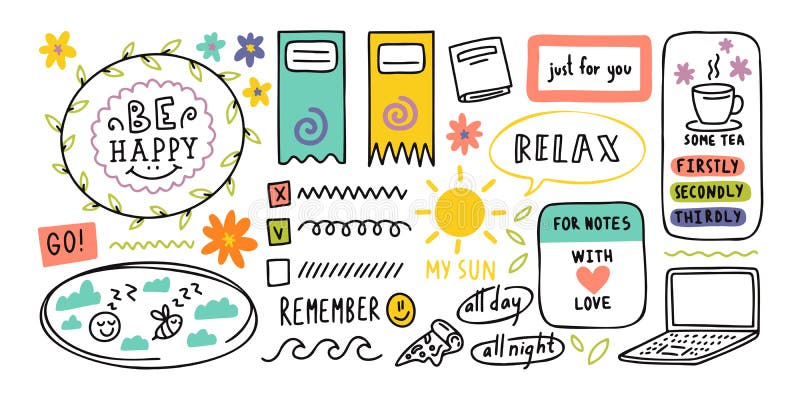 BE
HAPPY
just for you
RELAX
SOME TEA
FIRSTLY
SECONDLY
THIRDLY
X
V
GO!
MY SUN
FOR NOTES
WITH
LOVE
zzz
zzz
REMEMBER
all day
all night